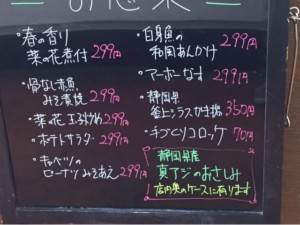 お惣菜
・春の香り
菜の花煮付 299円
・骨なし赤魚
みそ煮 299円
・菜の花 299円
・ポテトサラダ 299円
・キャベツの
ピーナツみそあえ 299円
・白身魚の
和風あんかけ 299円
・マーボーなす 299円
・静岡県
釜上シラスかき揚 350円
・手づくりコロッケ 70円
静岡県産
真アジのおさしみ
店内奥のケースに有ります